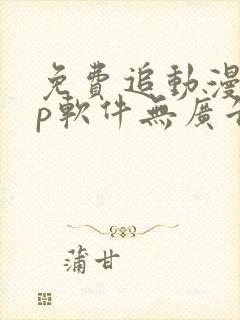 免費追動漫
p軟件無廣告
蒲甘